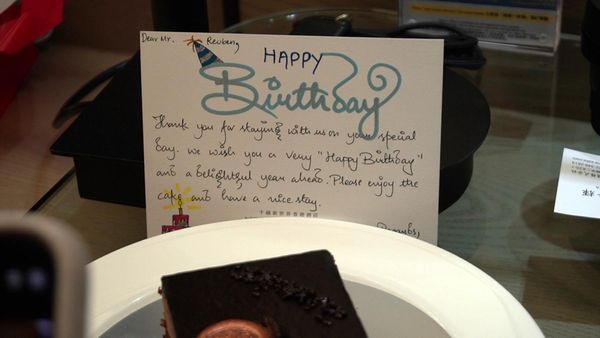 Dear Mr. Reuben,
HAPPY
Birthday
Thank you for staying with us on your special
day. We wish you a very "Happy Birthday"
and a delightful year ahead. Please enjoy the
cake and have a nice stay.